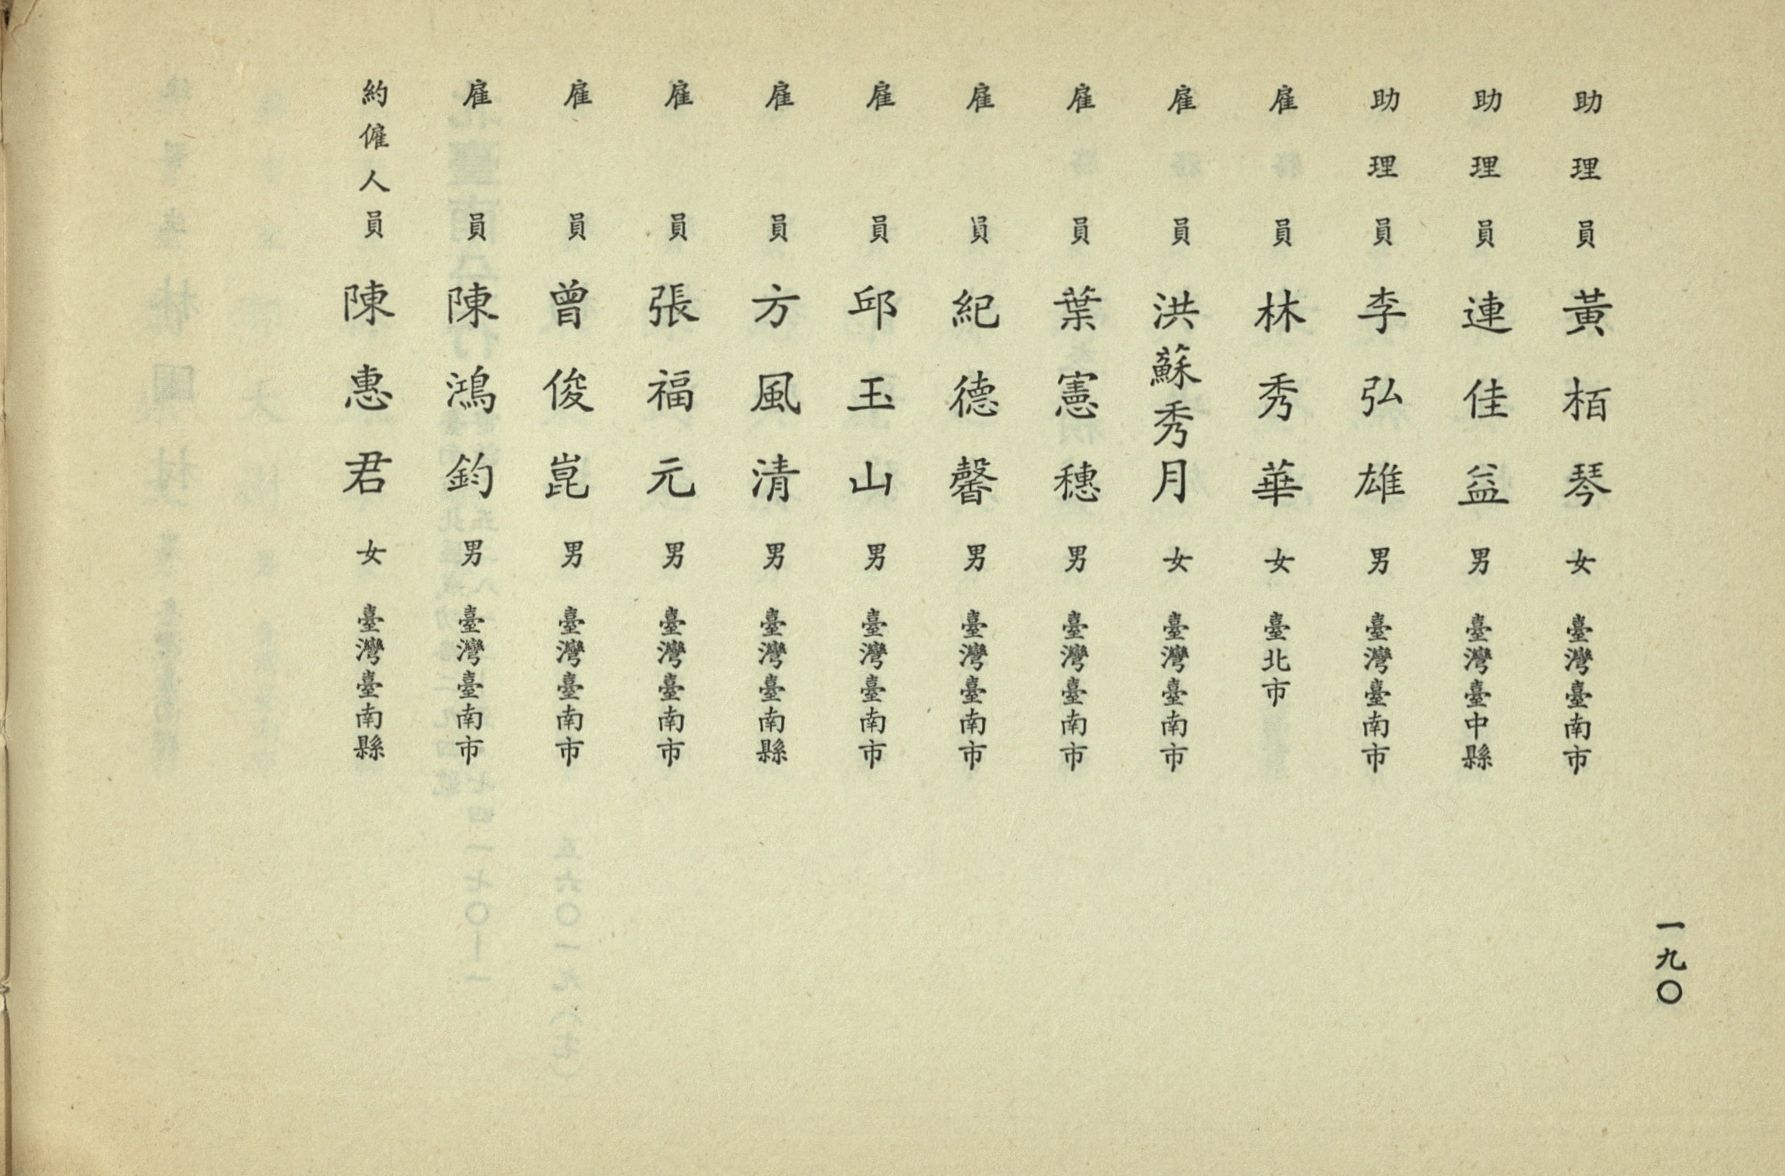 助理員 黃栢琴 女 臺灣臺南市
助理員 連佳益 男 臺灣臺中縣
助理員 李弘雄 男 臺灣臺南市
雇員 林秀華 女 臺北市
雇員 洪蘇秀月 女 臺灣臺南市
雇員 葉憲穗 男 臺灣臺南市
雇員 紀德馨 男 臺灣臺南市
雇員 邱玉山 男 臺灣臺南市
雇員 方風清 男 臺灣臺南縣
雇員 張福元 男 臺灣臺南市
雇員 曾俊崑 男 臺灣臺南市
雇員 陳鴻鈞 男 臺灣臺南市
約僱人員 陳惠君 女 臺灣臺南縣
一九〇